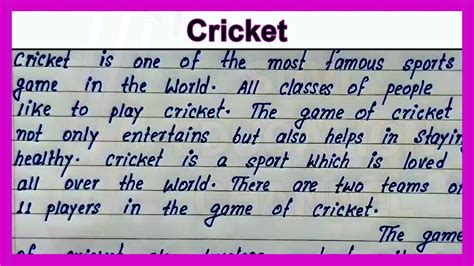 Cricket
Cricket is one of the most famous sports
game in the World. All classes of people
like to play cricket. The game of cricket
not only entertains but also helps in Staying
healthy. cricket is a sport which is loved
all over the World. There are two teams of
11 players in the game of cricket.
The game
of cricket also